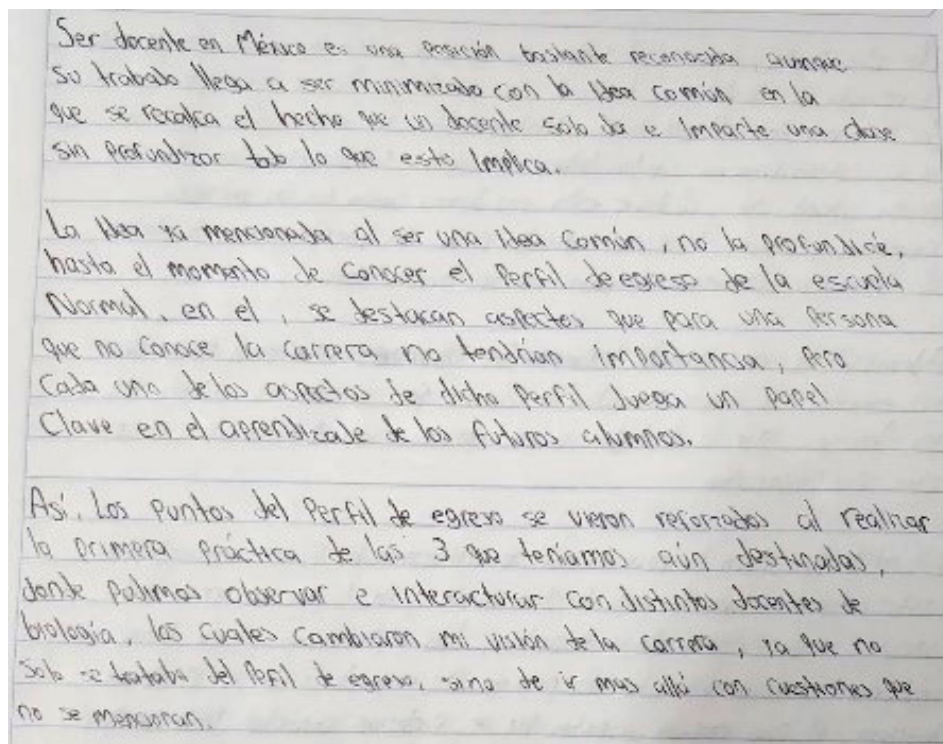 Ser docente en México es una posición bastante reconocida aunque
su trabajo llega a ser minimizado con la idea común en la
que se recalca el hecho que un docente solo da e imparte una clase
sin profundizar todo lo que esto implica.
La idea ya mencionada al ser una idea común, no la profundicé,
hasta el momento de conocer el perfil de egreso de la escuela
Normal, en el, se destacan aspectos que para una persona
que no conoce la carrera no tendrían importancia, pero
cada uno de los aspectos de dicho perfil juega un papel
Clave en el aprendizaje de los futuros alumnos.
Así, Los puntos del perfil de egreso se vieron reforzados al realizar
la primera práctica de las 3 que teníamos aún destinadas,
donde pudimos observar e interacturar con distintos docentes de
biología, los cuales cambiaron mi visión de la carrera, ya que no
solo se trataba del perfil de egreso, sino de ir mas allá con cuestiones que
no se mencionan.